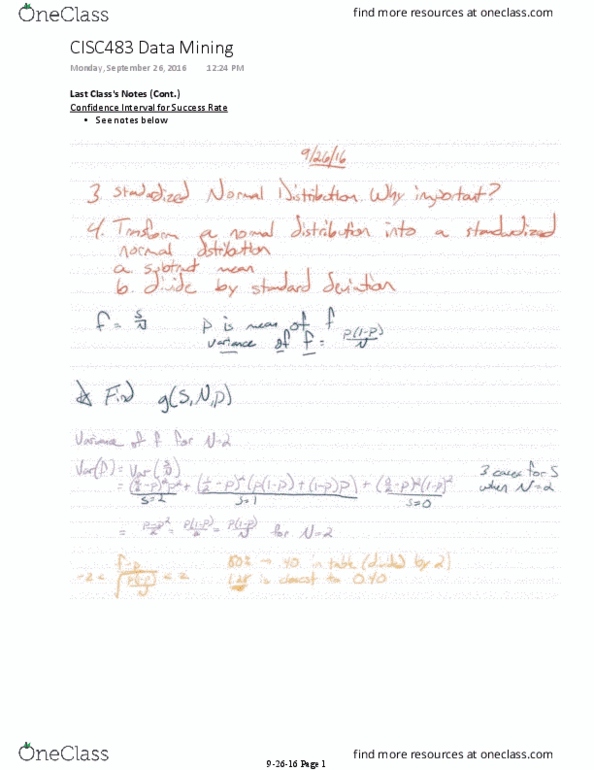 OneClass
find more resources at oneclass.com
CISC483 Data Mining
Monday, September 26, 2016 12:24 PM
Last Class's Notes (Cont.)
Confidence Interval for Success Rate
• See notes below
9/26/16
3. Standardized Normal Distribution. Why important?
4. Transform a normal distribution into a standardized
normal distribution
a. subtract mean
b. divide by standard deviation
f = S/N
p is mean of f
variance of f = p(1-p)/N
Find g(S,N,p)
Variance of f for N=2
Var(f) = Var(S/N)
= (2/2 -p)²p² + (1/2 -p)²(p(1-p) + (1-p)p) + (0/2 -p)²(1-p)²
S=2 S=1 S=0
3 cases for S
when N=2
= p-p²/2 = p(1-p)/2 = p(1-p)/N for N=2
-z < f-p/√p(1-p)/N < z
80% → .40 in table (divided by 2)
1.28 is closest to 0.40
OneClass
find more resources at oneclass.com
9-26-16 Page 1